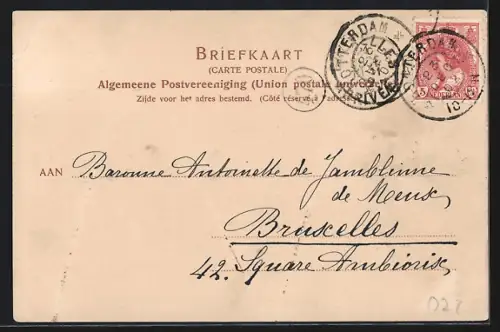 BRIEFKAART
(CARTE POSTALE)
Algemeene Postvereeniging (Union postale
Zijde voor het adres bestemd. (Côté réservé à
ROTTERDAM
ROTTERDAM
AAN
Baronne Antoinette de Jamblinne
de Meux
Bruxelles
42. Square Ambiorix